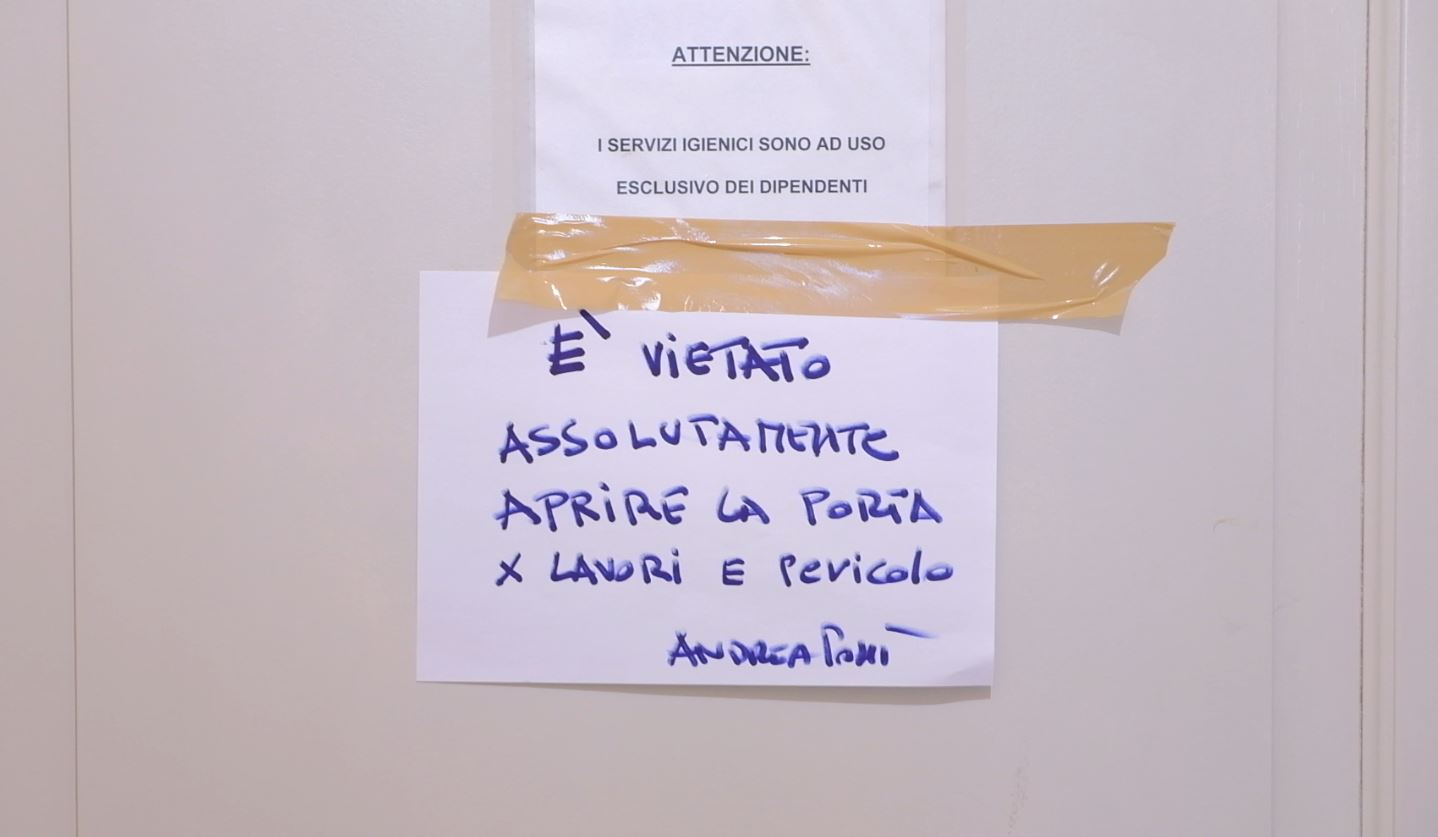 ATTENZIONE:
I SERVIZI IGIENICI SONO AD USO
ESCLUSIVO DEI DIPENDENTI
E` VIETATO
ASSOLUTAMENTE
APRIRE LA PORTA
X LAVORI E PERICOLO
ANDREA